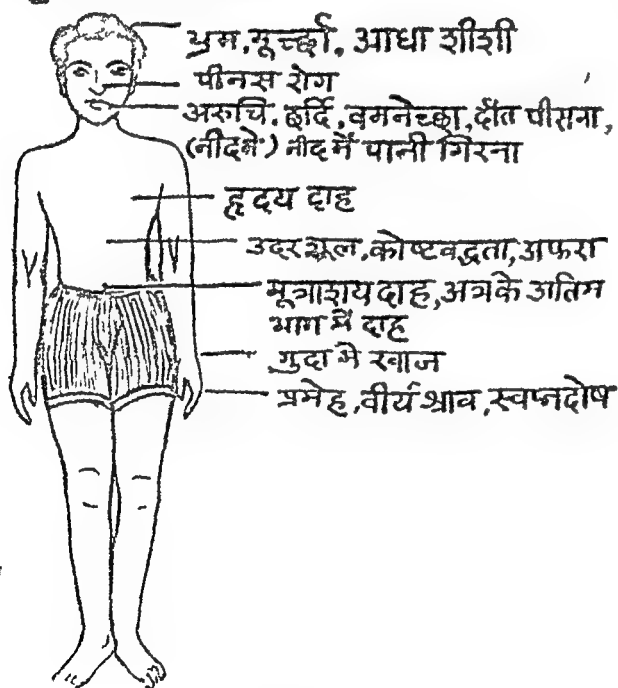 भ्रम, मूर्च्छा, आधा शीशी
पीनस रोग
अरुचि, छर्दि, वमनेच्छा, दाँत पीसना,
(नीदमें) नीद में पानी गिरना
हृदय दाह
उदर शूल, कोष्टवद्धता, अफरा
मूत्राशय दाह, अत्रके अतिम
भाग में दाह
गुदा मे खाज
प्रमेह, वीर्य श्राव, स्वप्नदोष